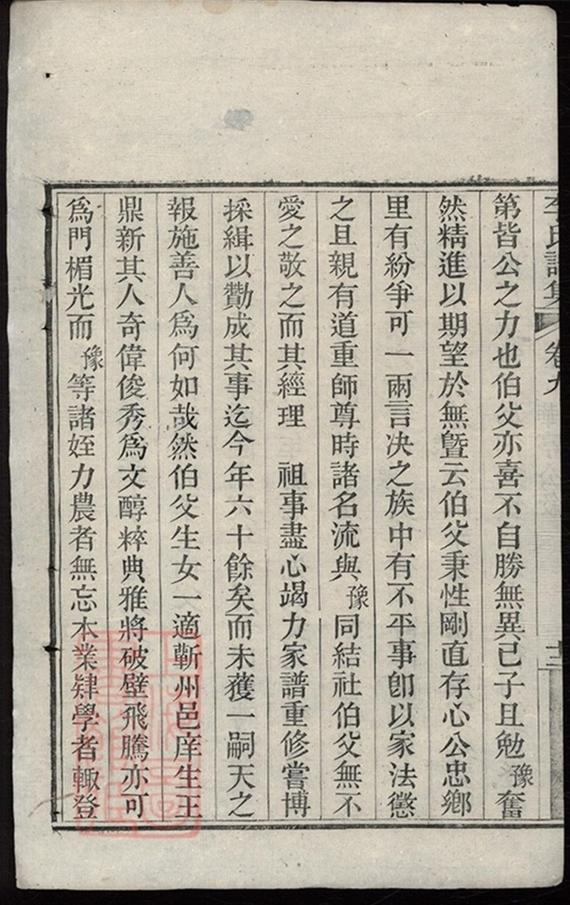 李氏譜集 卷九 十二
第皆公之力也伯父亦喜不自勝無異己子且勉豫奮
然精進以期望於無曁云伯父秉性剛直存心公忠鄉
里有紛爭可一兩言決之族中有不平事卽以家法懲
之且親有道重師尊時諸名流與豫同結社伯父無不
愛之敬之而其經理 祖事盡心竭力家譜重修嘗博
採緝以勷成其事迄今年六十餘矣而未獲一嗣天之
報施善人爲何如哉然伯父生女一適蘄州邑庠生王
鼎新其人奇偉俊秀爲文醇粹典雅將破壁飛騰亦可
爲門楣光而豫等諸姪力農者無忘本業肄學者輙登